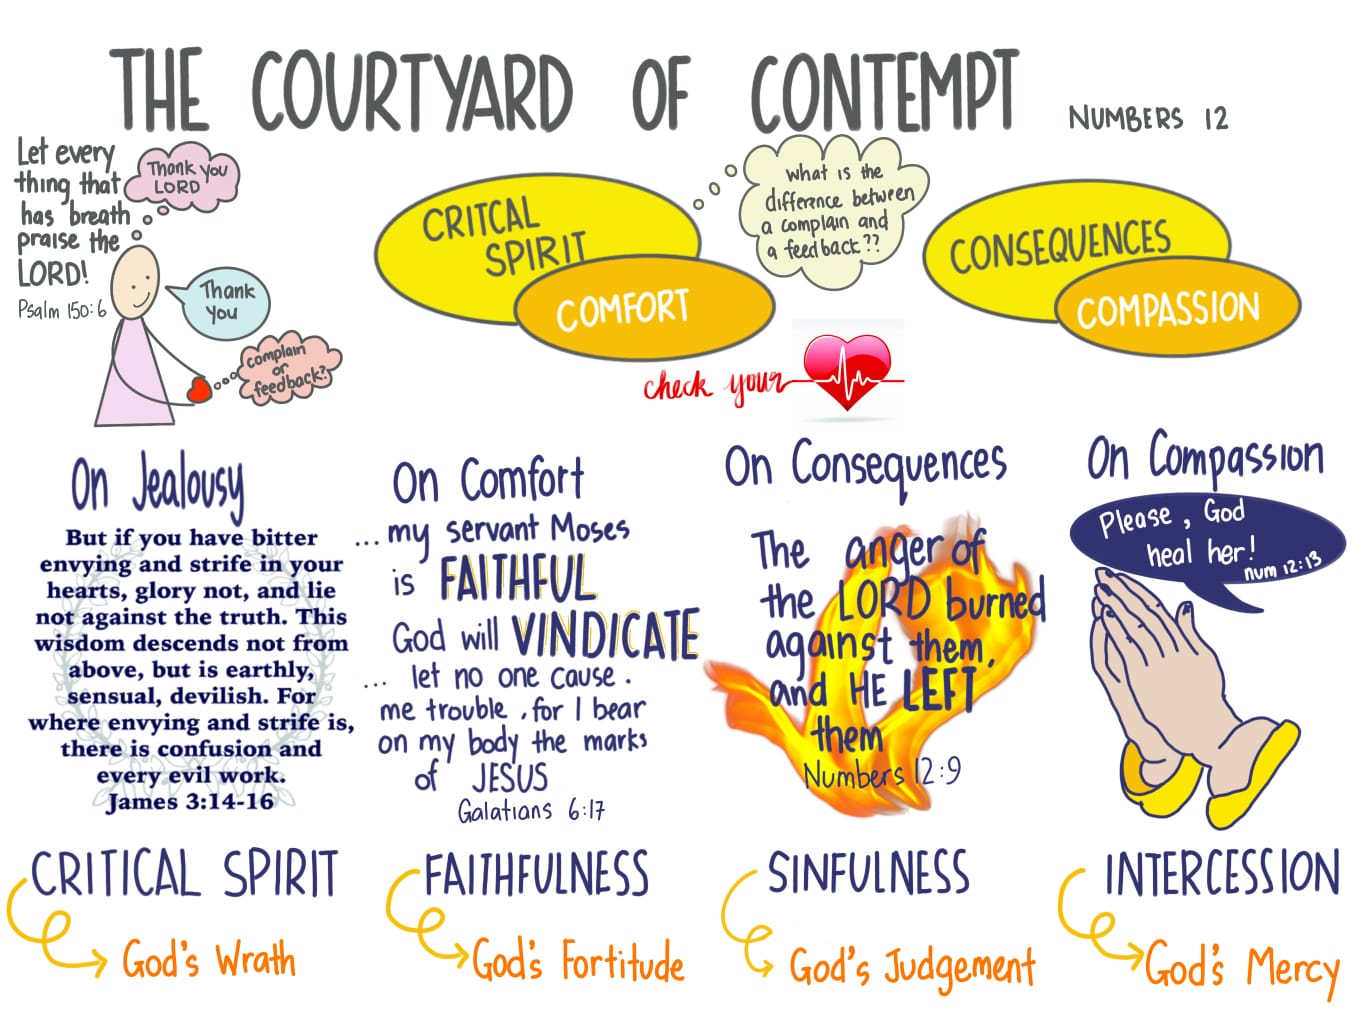 THE COURTYARD OF CONTEMPT
NUMBERS 12
Let every
thing that
has breath
praise the
LORD!
Psalm 150:6
Thank you
LORD
Thank
you
complain
or
feedback?
CRITCAL
SPIRIT
COMFORT
what is the
difference between
a complain and
a feedback??
CONSEQUENCES
COMPASSION
check your
On Jealousy
But if you have bitter
envying and strife in your
hearts, glory not, and lie
not against the truth. This
wisdom descends not from
above, but is earthly,
sensual, devilish. For
where envying and strife is,
there is confusion and
every evil work.
James 3:14-16
On Comfort
...my servant Moses
is FAITHFUL
God will VINDICATE
... let no one cause.
me trouble, for I bear
on my body the marks
of JESUS
Galatians 6:17
On Consequences
The anger of
the LORD burned
against them,
and HE LEFT
them
Numbers 12:9
On Compassion
Please, God
heal her!
num 12:13
CRITICAL SPIRIT
God's Wrath
FAITHFULNESS
God's Fortitude
SINFULNESS
God's Judgement
INTERCESSION
God's Mercy